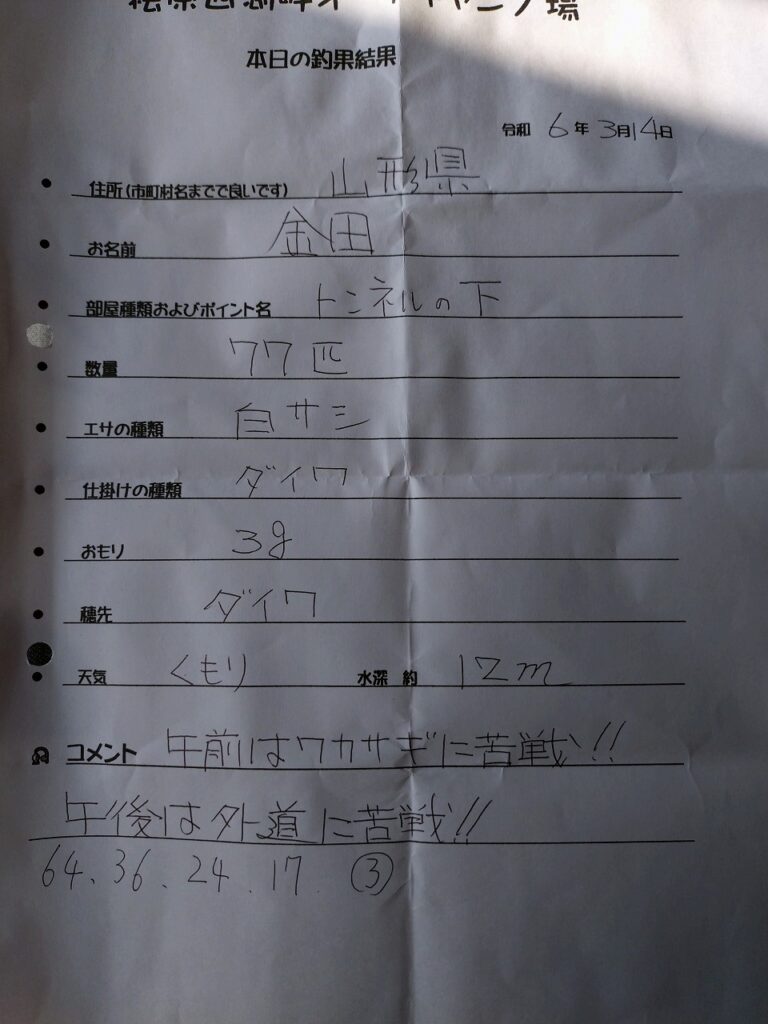 本日の釣果結果
令和 6 年 3月14日
住所(市町村名までで良いです) 山形県
お名前 金田
部屋種類およびポイント名 トンネルの下
数量 77匹
エサの種類 白サシ
仕掛けの種類 ダイワ
おもり 3g
穂先 ダイワ
天気 くもり 水深 約 12m
コメント 午前はワカサギに苦戦!!
午後は外道に苦戦!!
64、36、24、17 ③